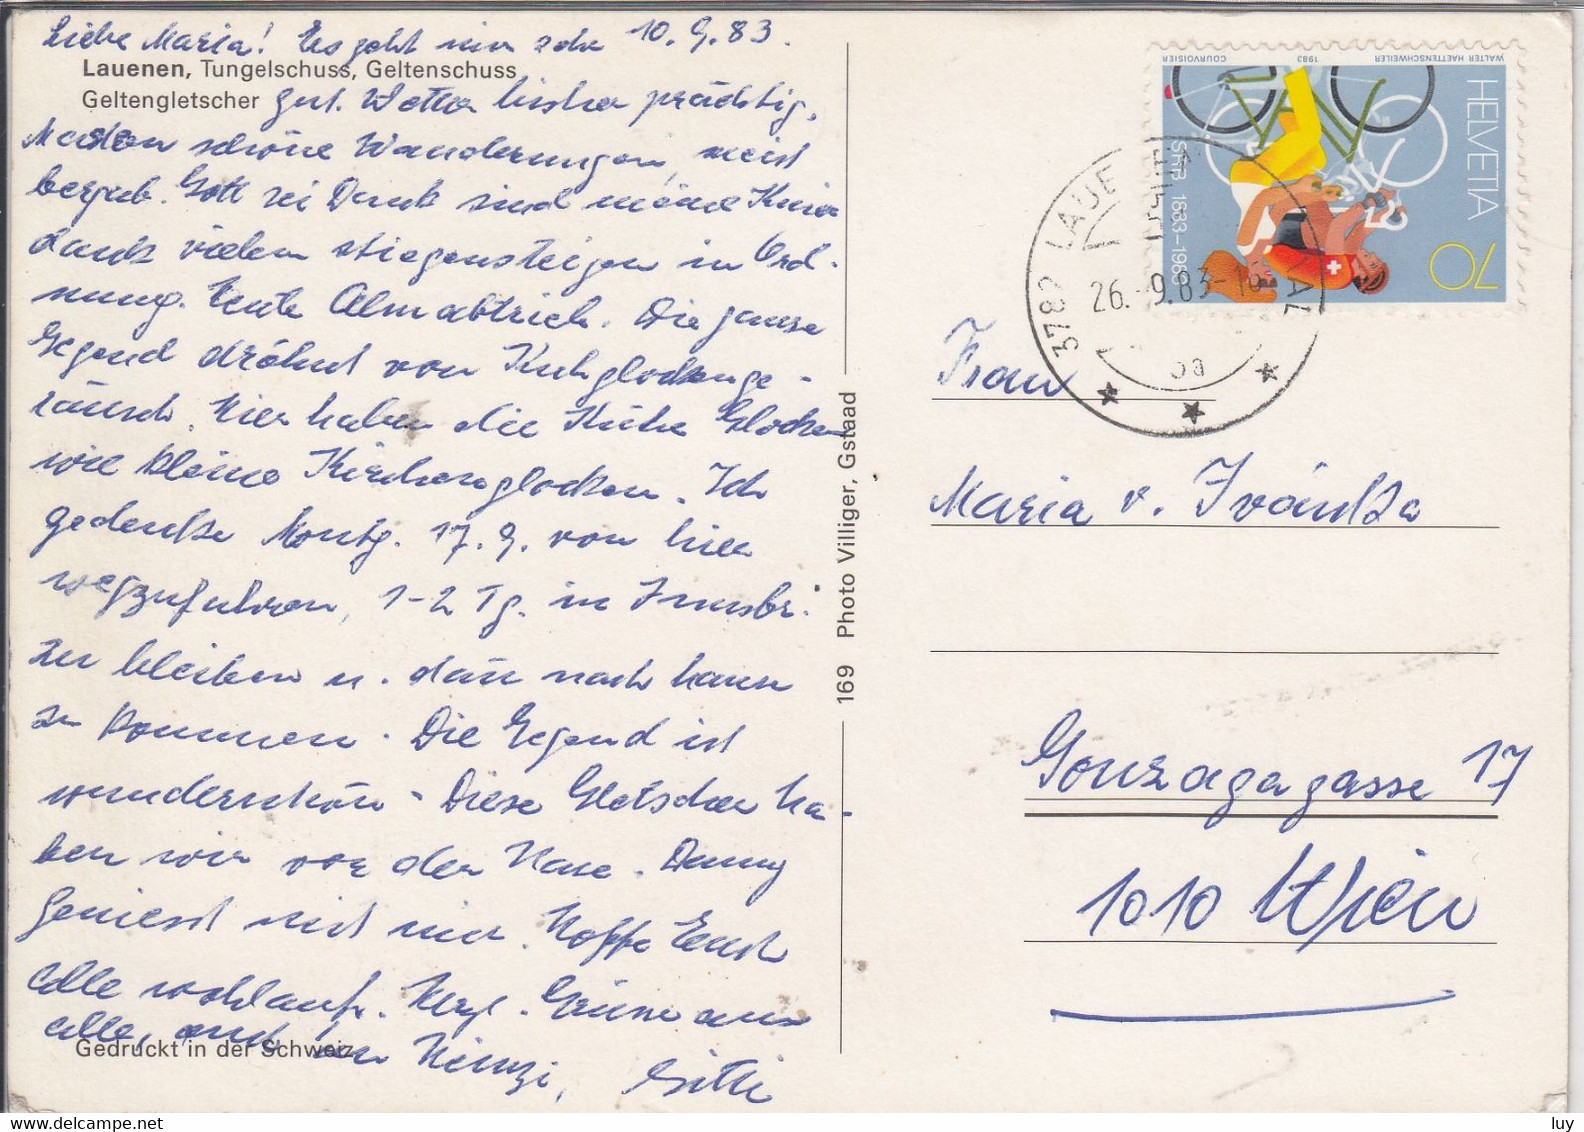 Liebe Maria! Es geht mir sehr 10.9.83.
Lauenen, Tungelschuss, Geltenschuss
Geltengletscher
gut. Wetter bisher prächtig,
Machen schöne Wanderungen, meist
bergab. Gott sei Dank sind meine Knie
dank vielem stiegensteigen in Ord-
nung. Heute Almabtrieb. Die ganze
Gegend dröhnt von Kuhglockenge-
räusch. Hier haben die Kühe Glocken
wie kleine Kirchenglocken. Ich
gedenke Montg. 17.9. von hier
wegzufahren, 1-2 Tg. in Innsbr.
zu bleiben u. dann nach hause
zu kommen. Die Gegend ist
wunderschön. Diese Gletscher ha-
ben wir vor der Nase. Danny
geniesst mit mir. Hoffe Euch
alle wohlauf. Herzl. Grüsse an
alle, auch an Heinzi, Gitti
Gedruckt in der Schweiz
169 Photo Villiger, Gstaad
HELVETIA
70
SRB 1883-1983
WALTER HAETTENSCHWEILER
1983
COURVOISIER
3782 LAUENEN
26.-9.83-16
Frau
Maria v. Ivánka
Gonzagagasse 17
1010 Wien